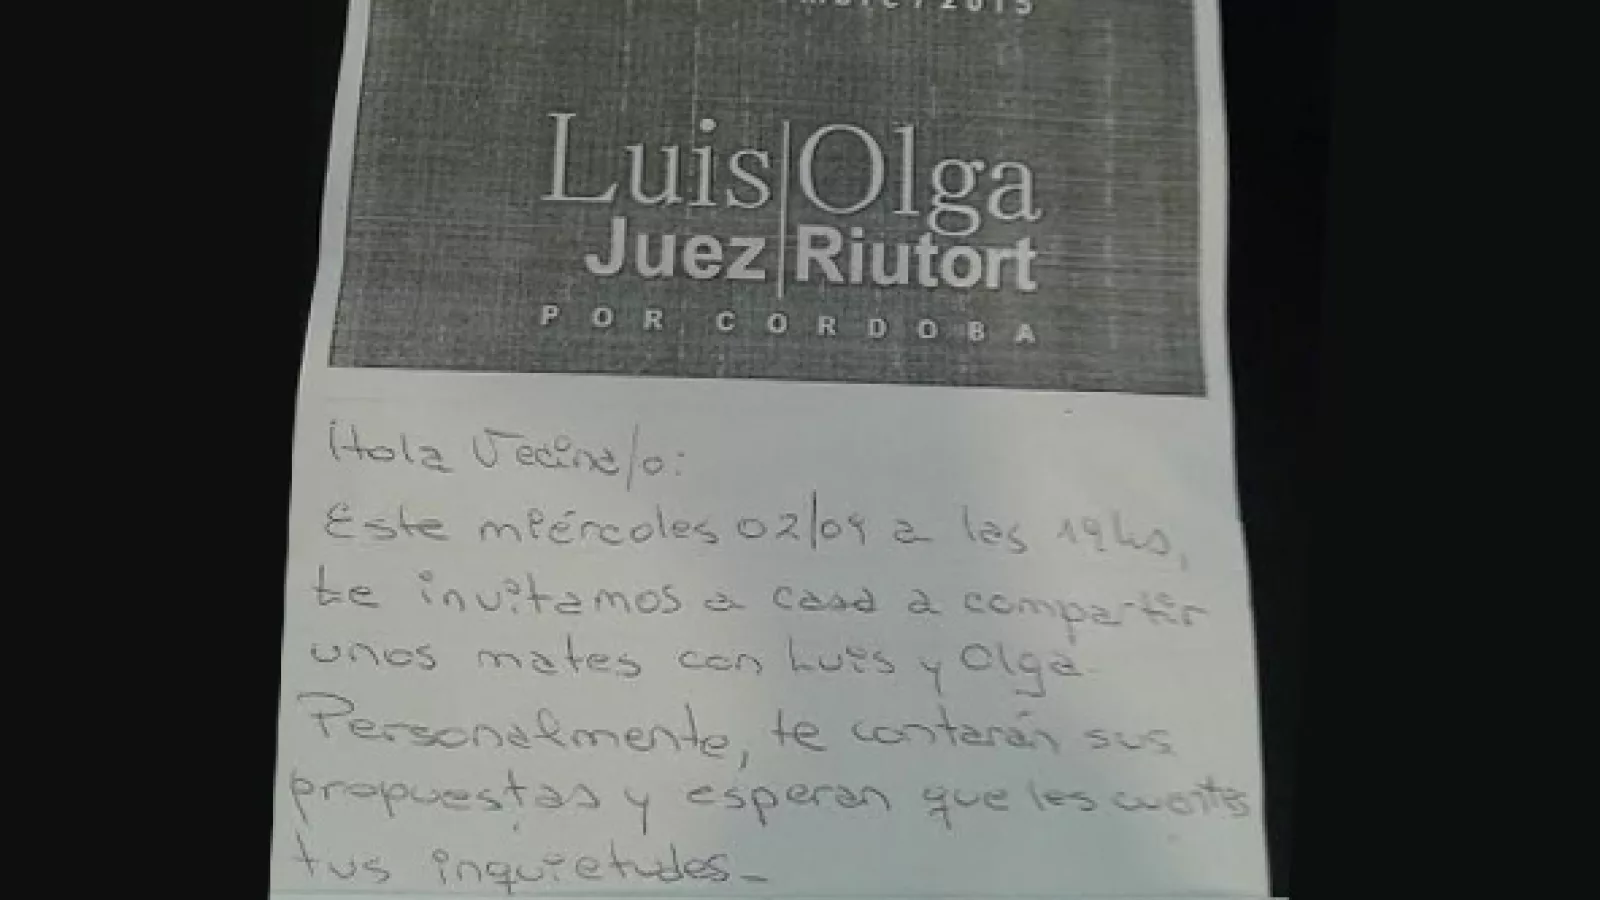 /2015
Luis Olga
Juez Riutort
POR CORDOBA
Hola Vecina/o:
Este miércoles 02/09 a las 19hs,
te invitamos a casa a compartir
unos mates con Luis y Olga.
Personalmente, te contarán sus
propuestas y esperan que les cuentes
tus inquietudes_